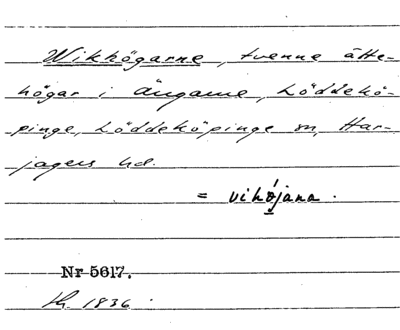 Wikhögarne, tvenne ätte-
högar i ängarne, Löddekö-
pinge, Löddeköpinge sn, Har-
jagers hd.
= vihǫ́jana.
Nr 5617.
1836.